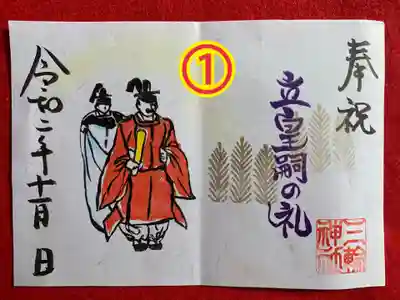 奉祝
立皇嗣の礼
①
令和二年十一月 日
三輪神社